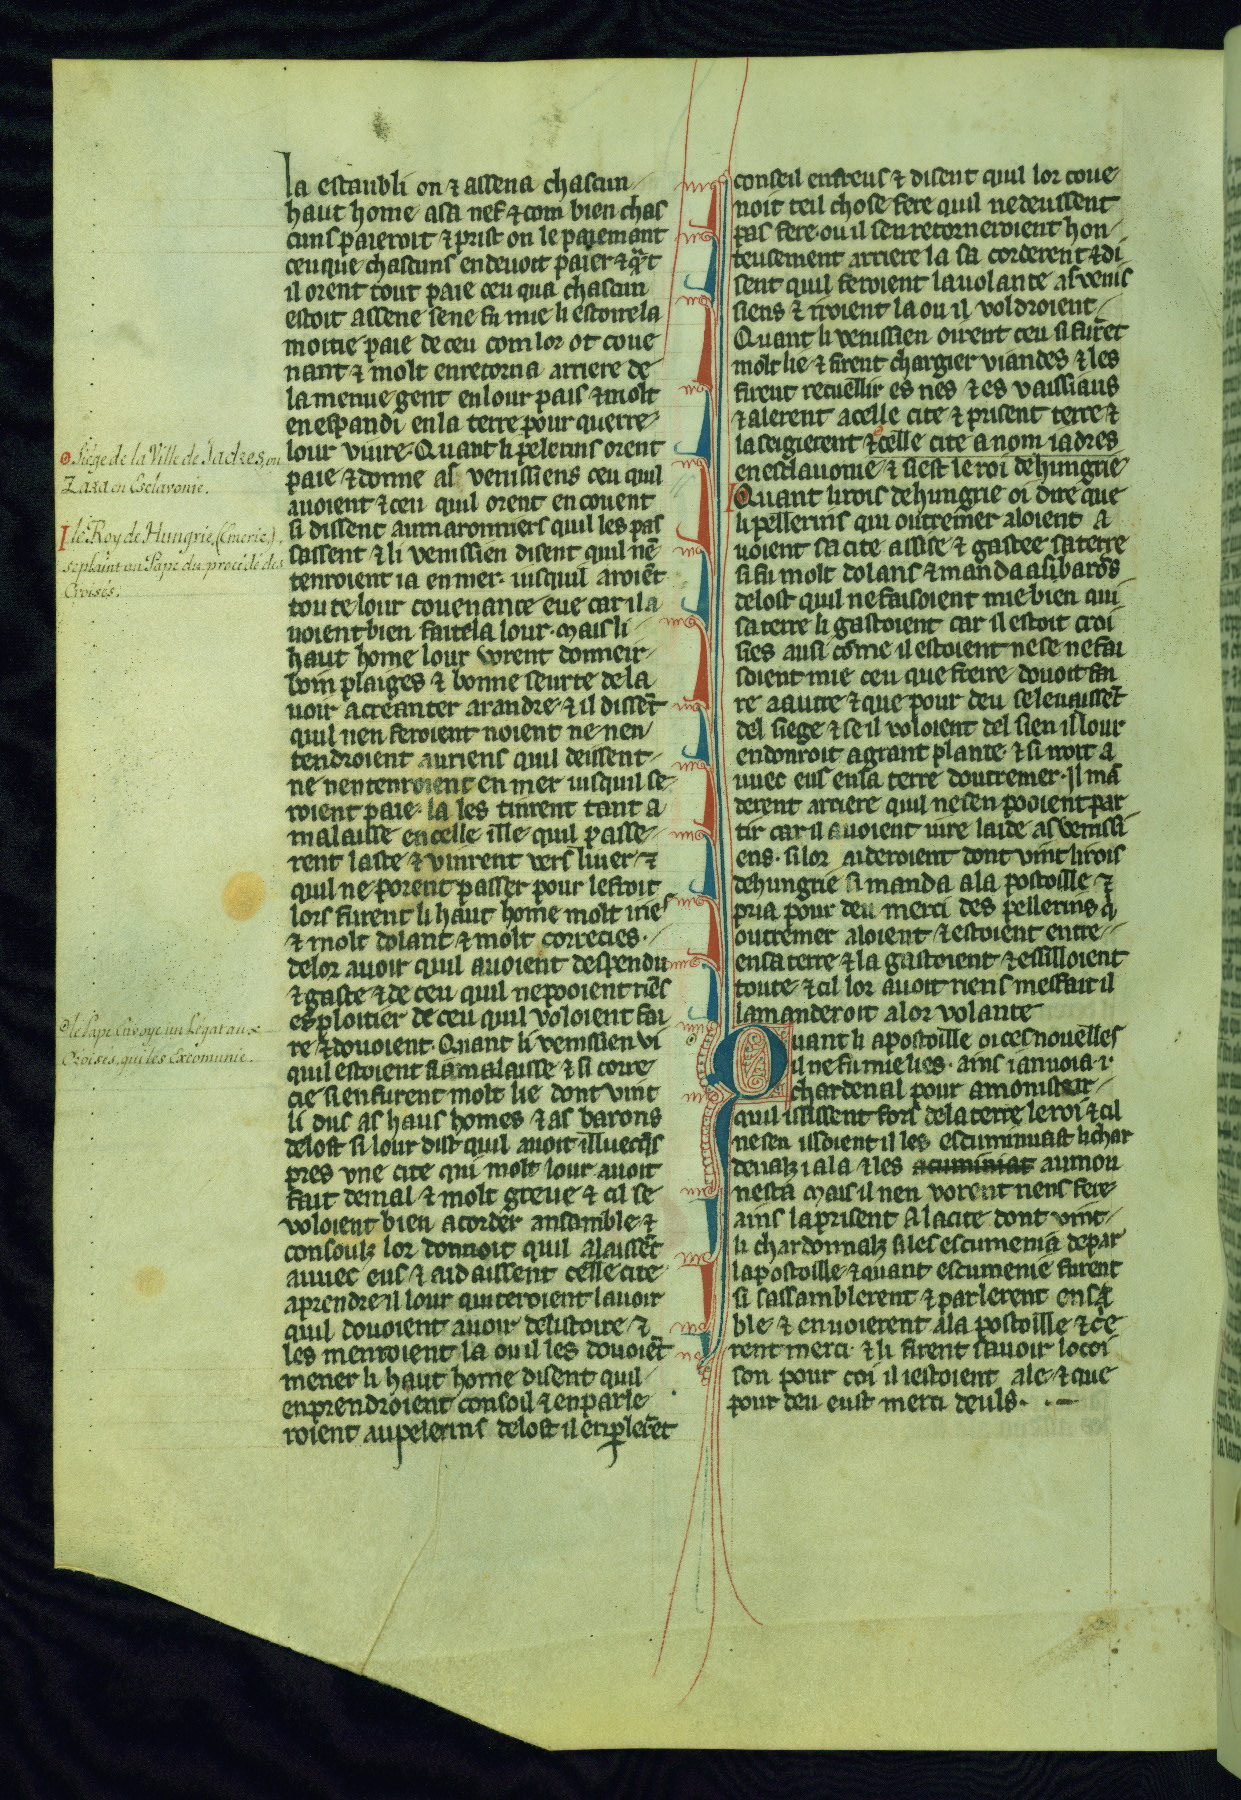 la estaubli on ⁊ assena chascun
haut home asa nef ⁊ com bien chas
cuns paieroit ⁊ prist on le paiemant
ceu que chascuns endevoit paier ⁊ qͣt
il orent tout paie ceu qua chascun
estoit assene sene fu mie li estoire la
moitie paie de ceu com lor ot cove
nant ⁊ molt enretorna arriere de
la menue gent en lour pais ⁊ molt
en espandi en la terre pour querre
lour vivre. Quant li pelerins orent
paie ⁊ donne as venissiens ceu quil
avoient ⁊ ceu quil orent en covent
si dissent aumaronniers quil les pas
sassent ⁊ li venissien disent quil nē
tenroient ia en mer. iusquil aroiēt
toute lour covenance eue car il a
voient bien faite la lour. Mais li
haut home lour vorent donneir
boin plaiges ⁊ bonne seurte de la
voir acreanter arandre. ⁊ il dissēt
quil nen feroient noient ne nen
tendroient auriens quil deissent
ne nentenroient en mer iusquil se
roient paie. la les tinrent tant a
malaisse en celle ille quil passe
rent laste ⁊ vinrent vers liver ⁊
quil ne porent passer pour lefroit
lors furent li haut home molt iries
⁊ molt dolant ⁊ molt correcies.
delor avoir quil avoient despendu
⁊ gaste ⁊ de ceu quil nepooient riēs
esploitier de ceu quil voloient fai
re ⁊ douoient. Quant li venissien vi
quil estoient si a malaisse ⁊ si corre
cie si en furent molt lie dont vint
li dus as haus homes ⁊ as barons
delost si lour dist quil avoit illuecqs
pres une cite qui molt lour avoit
fait demal ⁊ molt greve ⁊ cil se
voloient bien acorder ansamble ⁊
consoulz lor donnoit quil alaissēt
avvec eus ⁊ aidaissent celle cite
aprendre il lour quiteroient lavoir
quil douoient avoir delistoire ⁊
les menroient la ou il les douoiēt
mener li haut home disent quil
enprendroient consoil ⁊ enparle
roient aupelerins delost il enꝑlerēt
conseil entreus ⁊ disent quil lor cove
noit teil chose fere quil nedeussent
pas fere. ou il sen retorneroient hon
teusement arriere la sa corderent ⁊ di
sent quil feroient la volante as venis
siens ⁊ iroient la ou il voldroient
Quant li venissien oirent ceu si furēt
molt lie ⁊ firent chargier viandes ⁊ les
firent recuellir es nes ⁊ es vaissiaus
⁊ alerent acelle cite ⁊ prisent terre ⁊
la seigierent ⁊ celle cite a nom iadres
en esclavonie ⁊ siest le roi dehungrie
Quant li rois dehungrie oi dire que
li pellerins qui outremer aloient a
voient sa cite assise ⁊ gastee sa terre
si fu molt dolans ⁊ manda asibarōs
delost quil ne faisoient mie bien qui
sa terre li gastoient car il estoit croi
sies ausi cōme il estoient ne se ne fai
soient mie ceu que freire douoit fai
re a autre ⁊ que pour deu se levaissēt
del siege ⁊ se il voloient del sien il lour
endonroit a grant plante. ⁊ si iroit a
vuec eus ensa terre doutremer. Il mā
derent arriere quil nesen pooient par
tir car il avoient iure laide as venissi
ens. si lor aideroient dont vint li rois
dehungrie si manda a la postoille ⁊
pria pour deu merci des pellerins q̄
outremer aloient ⁊ estoient entre
ensa terre ⁊ la gastoient ⁊ essilloient
toute ⁊ cil lor avoit riens meffait il
lamanderoit a lor volante
Quant li apostoille oi ces nouelles
il ne fu mie lies. ains i anvoia .i.
chardenal pour amonister
quil ississent fors dela terre le roi ⁊ cil
ne sen issoient il les escuminuast li char
denalz i ala ⁊ les acuminiat aumon
nesta Mais il nen vorent riens fere
ains laprisent a la cite dont vint
li chardonnalz si les escumenia depar
lapostoille ⁊ quant escumenie furent
si sassamblerent ⁊ parlerent ensā
ble ⁊ envoierent a la postoille ⁊ cē
rent merci. ⁊ li firent savoir locoi
son pour coi il iestoient ale ⁊ que
pour deu eust merci deuls.
Siege de la Ville de Jadres, ou
Zara en Esclavonie.
le Roy de Hungrie, (Emeric,)
se plaint au Pape du procédé des
Croisés.
le Pape Envoye un Légat aux
Croisés, qui les Excomunie.